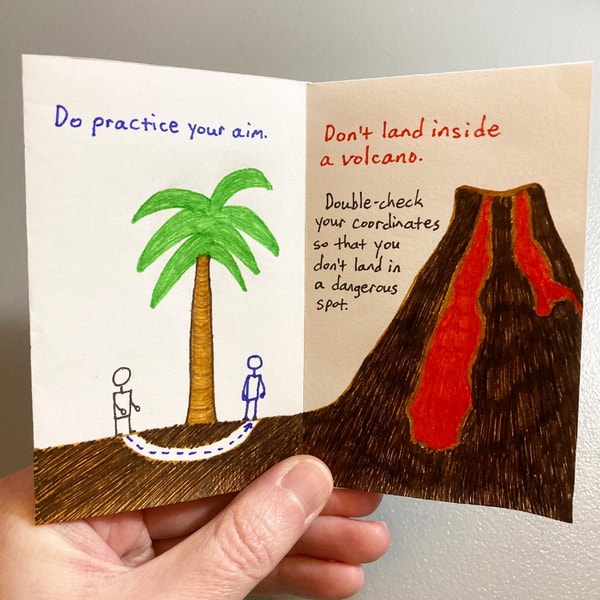 Do practice your aim.
Don't land inside
a volcano.
Double-check
your coordinates
so that you
don't land in
a dangerous
spot.